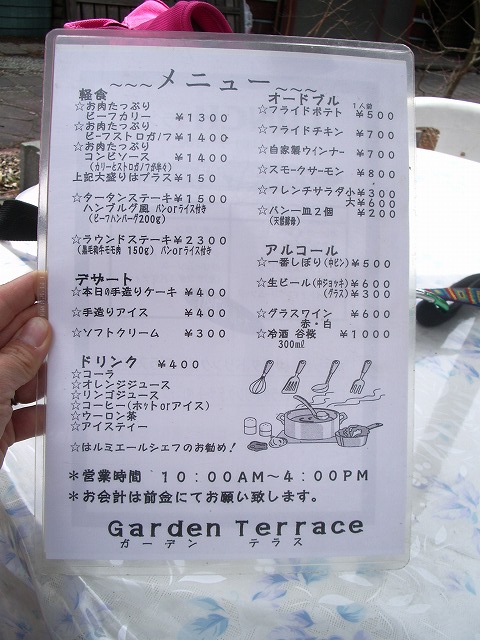 ～～～メニュー～～～
軽食
☆お肉たっぷり
ビーフカリー ￥1300
☆お肉たっぷり
ビーフストロガノフ￥1400
☆お肉たっぷり
コンビソース ￥1400
(カリーとストロガノフが半々)
上記大盛りはプラス￥150
☆タータンステーキ￥1500
ハンブルグ風 パンorライス付き
(ビーフハンバーグ200g)
☆ラウンドステーキ￥2300
(黒毛和牛モモ肉 150g) パンorライス付き
デザート
☆本日の手造りケーキ ￥400
☆手造りアイス ￥400
☆ソフトクリーム ￥300
ドリンク ￥400
☆コーラ
☆オレンジジュース
☆リンゴジュース
☆コーヒー(ホットorアイス)
☆ウーロン茶
☆アイスティー
☆はルミエールシェフのお勧め!
オードブル
1人前
☆フライドポテト ￥500
☆フライドチキン ￥700
☆自家製ウィンナー ￥700
☆スモークサーモン ￥800
☆フレンチサラダ小￥300
大￥600
☆パン一皿2個 ￥200
(天然酵母)
アルコール
☆一番しぼり(中ビン)￥500
☆生ビール(中ジョッキ)￥600
(グラス)￥300
☆グラスワイン ￥600
赤・白
☆冷酒 谷桜 ￥1000
300ml
＊営業時間 10:00AM～4:00PM
＊お会計は前金にてお願い致します。
Garden Terrace
ガーデン テラス